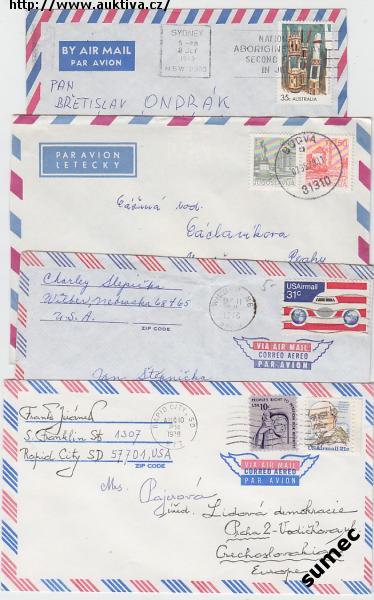 http://www.auktiva.cz/
BY AIR MAIL
PAR AVION
SYDNEY
5-PM
1973
N.S.W. 2000
NATION
ABORIGINES
SECOND
IN JULY
35c AUSTRALIA
PAN
BŘETISLAV ONDRÁK
PAR AVION
LETECKY
JUGOSLAVIJA
JUGOSLAVIJA
BUDVA
31310
vod.
Václavkova
Prahy
Charley Stepnička
Wilber, Nebraska 68465
U.S.A.
ZIP CODE
USAirmail
31c
VIA AIR MAIL
CORREO AEREO
PAR AVION
Jan Stepnička
Frank
S. Franklin St 1307
Rapid City SD 57701, USA
ZIP CODE
RAPID CITY, SD
1978
PEOPLE'S RIGHT TO
US 10c
USAirmail 21c
VIA AIR MAIL
CORREO AEREO
PAR AVION
Mrs. Pajerová
Lidová demokracie
Praha 2 - Vodičkova ul.
Czechoslovakia
Europe
sumec